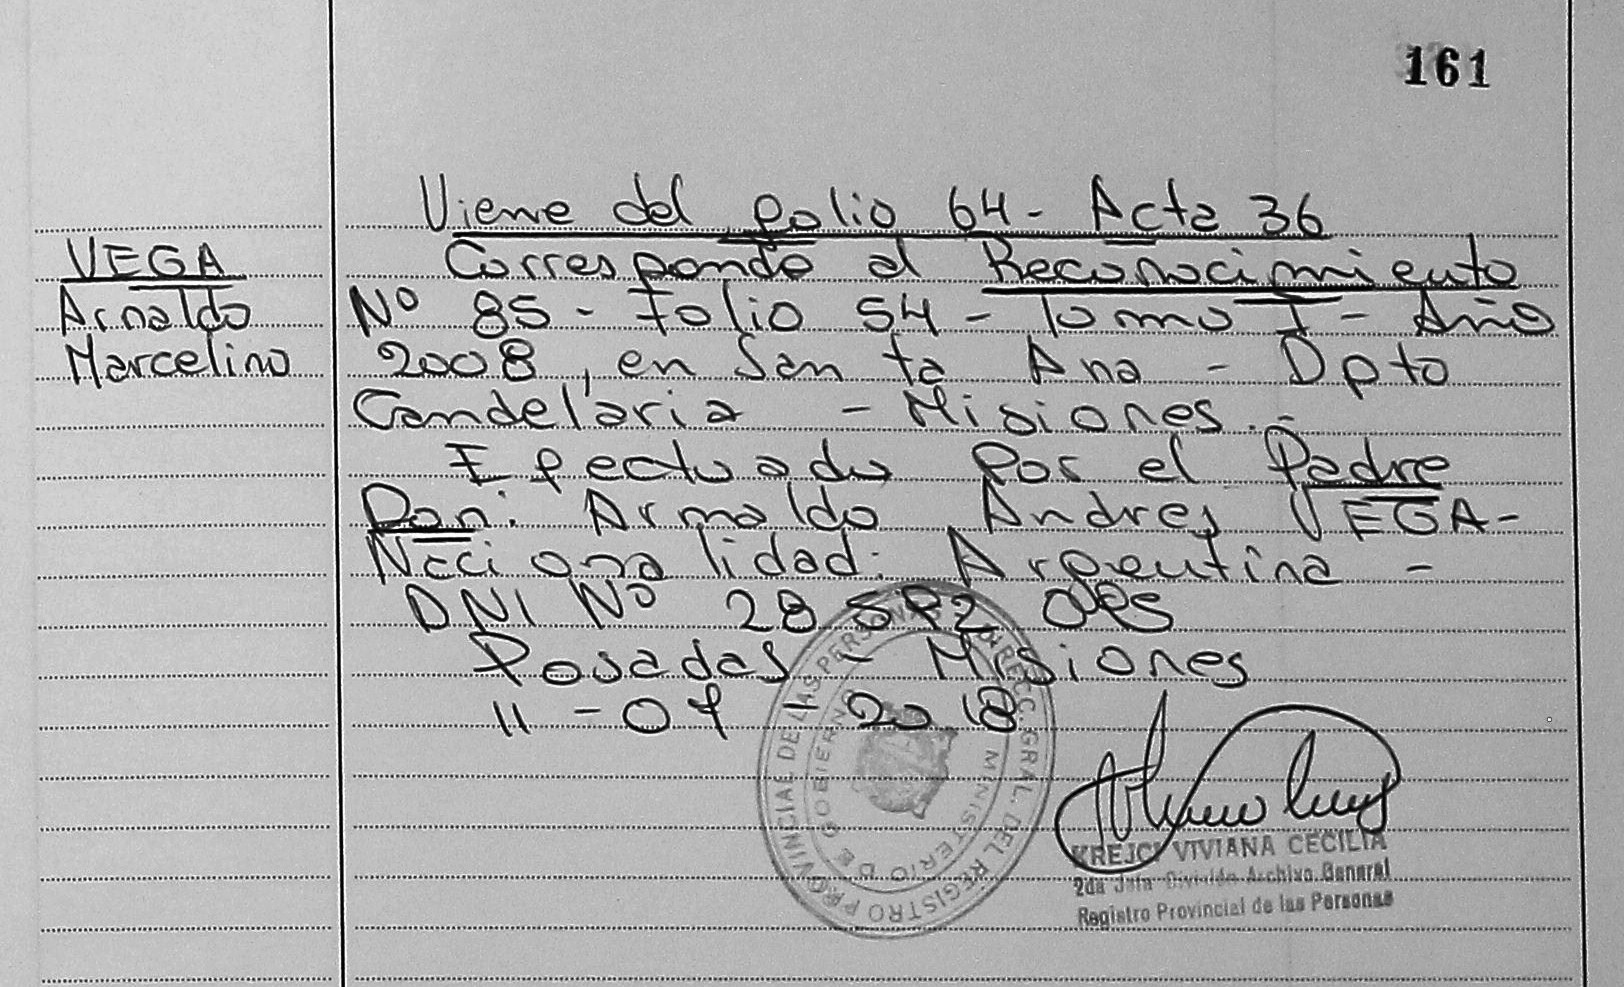 161
Viene del folio 64 - Acta 36
VEGA
Arnaldo
Marcelino
Corresponde al Reconocimiento
Nº 85 - Folio 54 - Tomo I - Año
2008, en Santa Ana - Dpto
Candelaria - Misiones.-
Efectuado Por el Padre
Don: Arnaldo Andres VEGA-
Nacionalidad: Argentina -
DNI Nº 28
Posadas - Misiones
11 - 07 - 2018
DIRECC. GRAL. DEL REGISTRO PROVINCIAL DE LAS PERSONAS
MINISTERIO DE GOBIERNO
KREJCI VIVIANA CECILIA
2da Jefa División Archivo General
Registro Provincial de las Personas